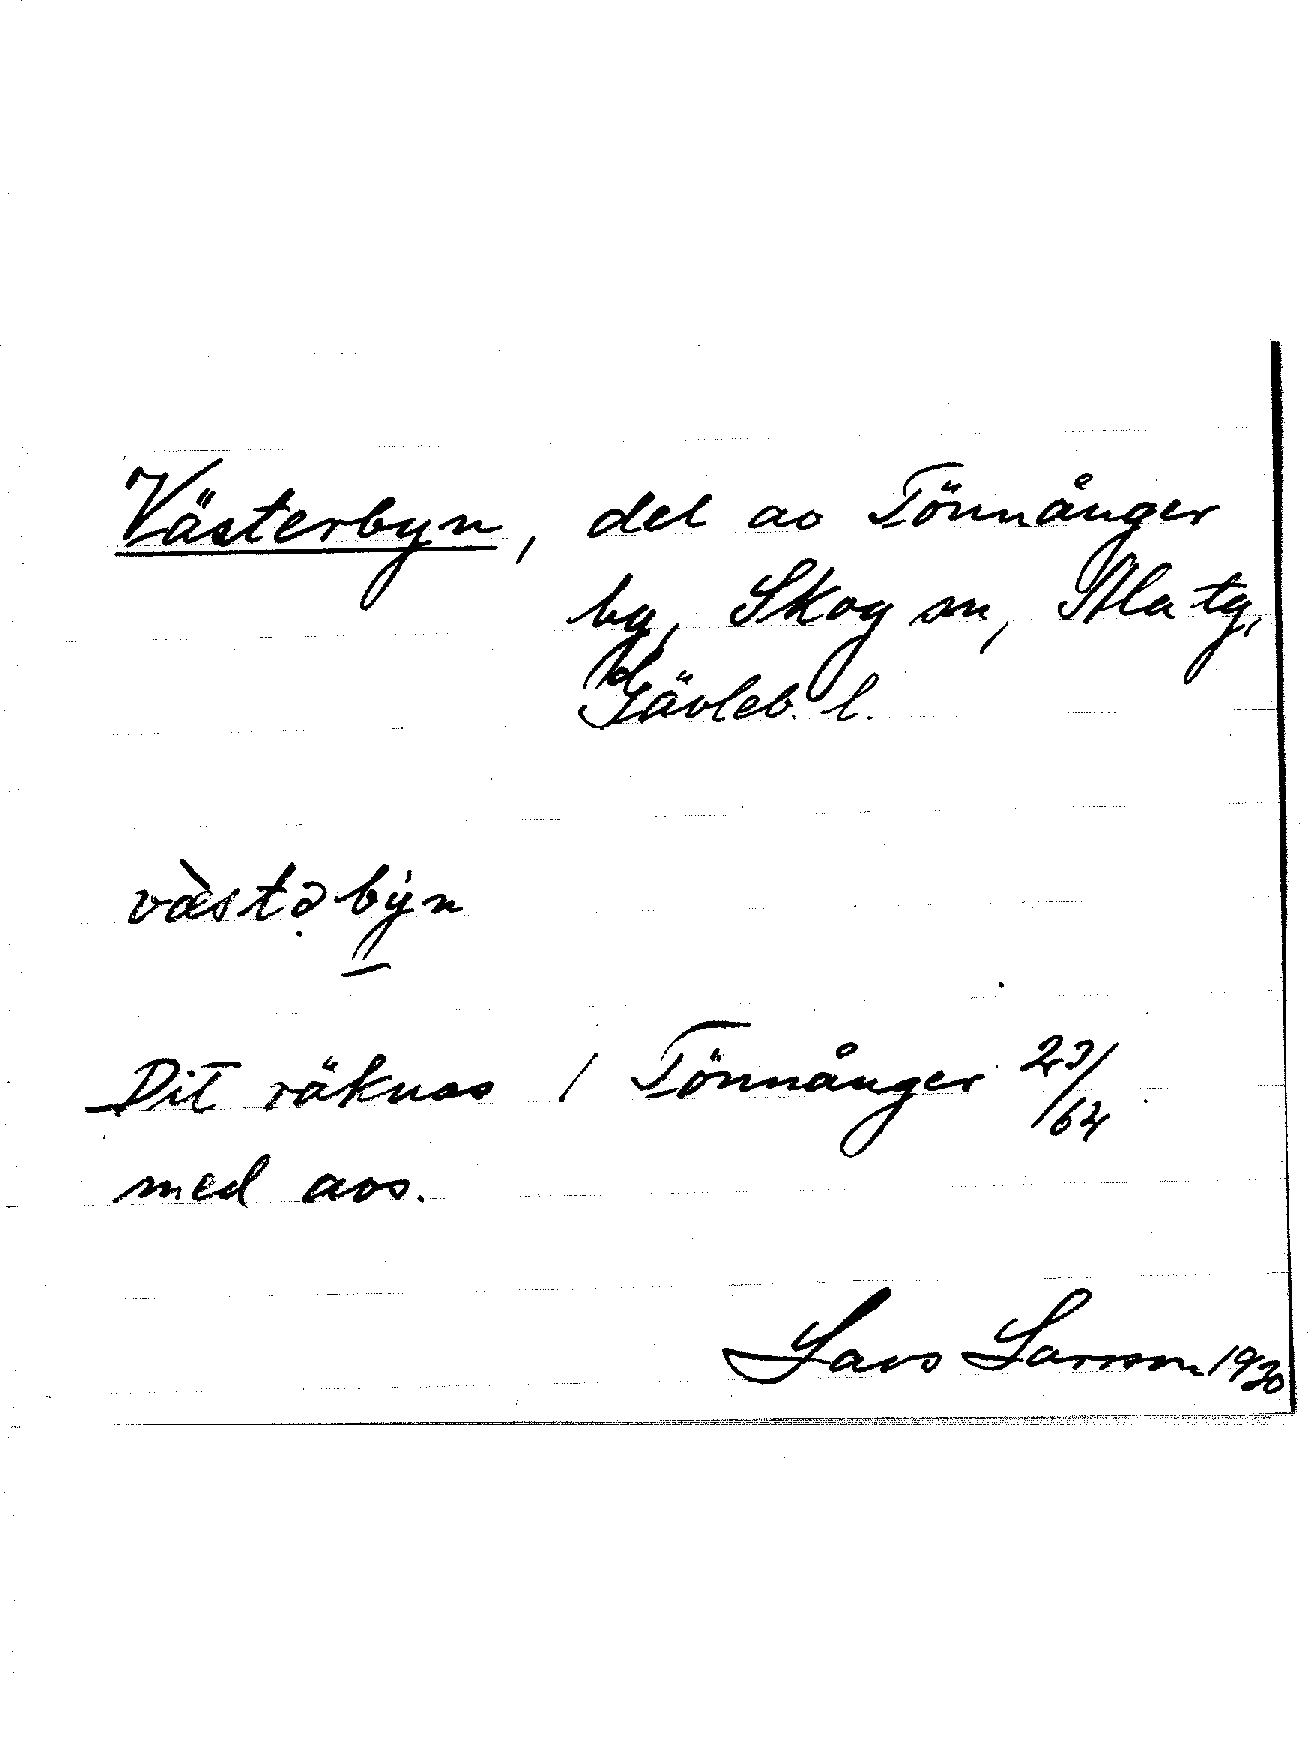 Västerbyn, del av Tönnånger
by, Skog sn, Ala tg,
Gävleb. l.
vàstəbýn
Dit räknas / Tönnånger 23/64
med avs.
Lars Larsson 1930